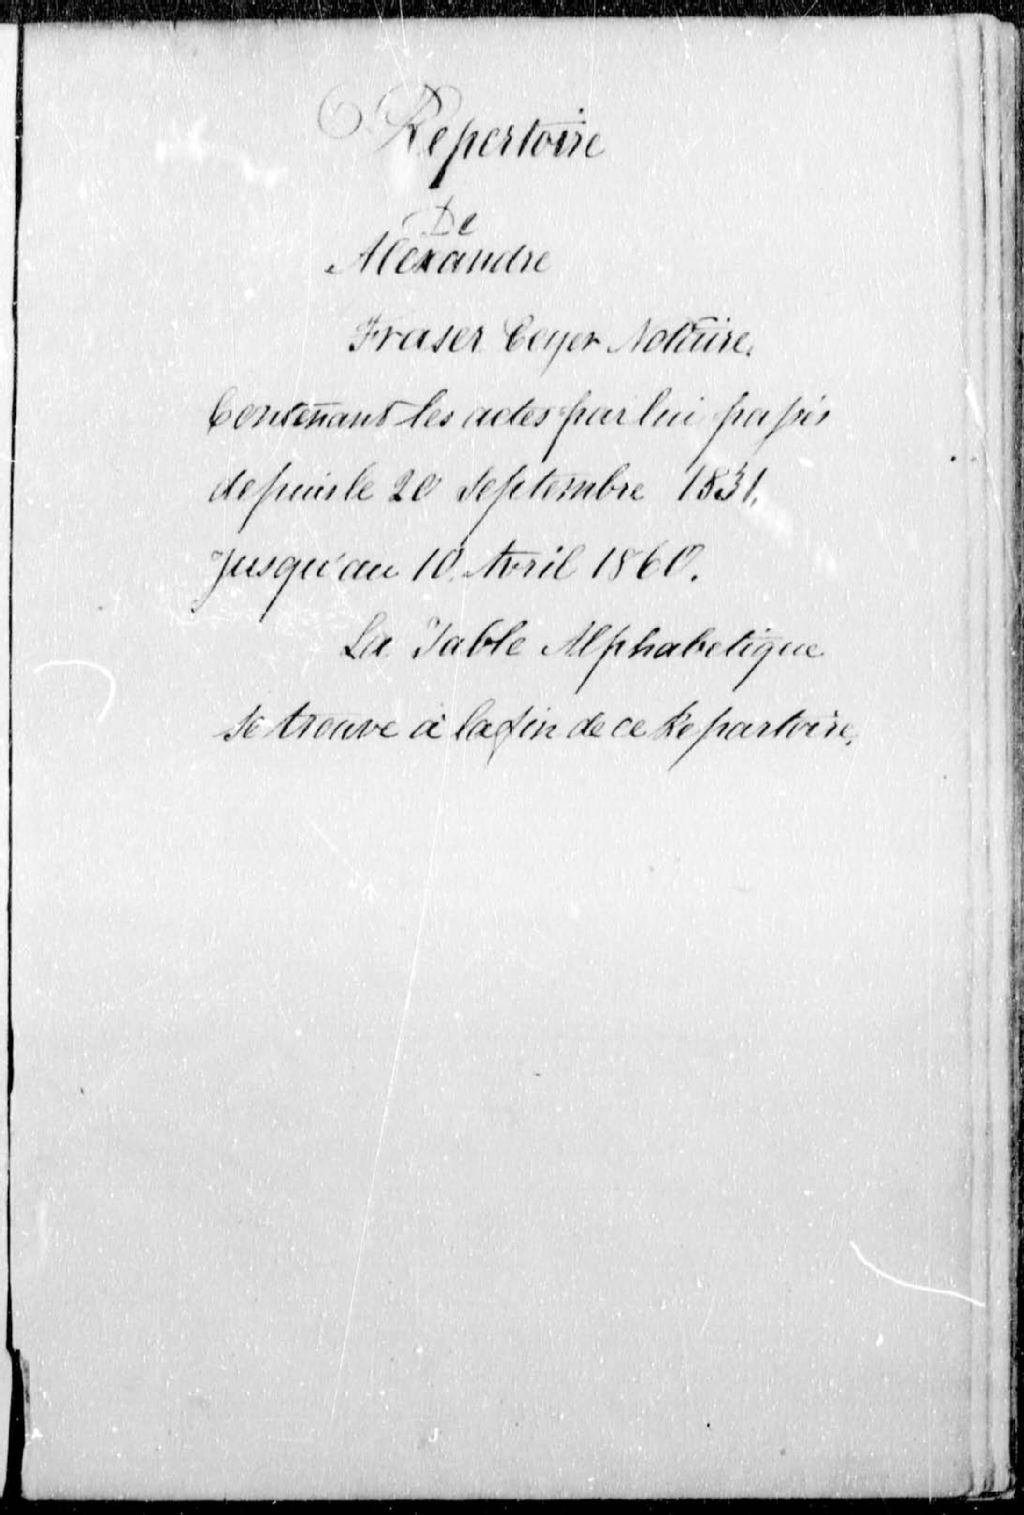 Repertoire
De
Alexandre
Fraser Ecyer Notaire.
Contenant les actes par lui passés
depuis le 20 Septembre 1831.
Jusqu'au 10 Avril 1860.
La Table Alphabetique
se trouve à la fin de ce Repartoire.